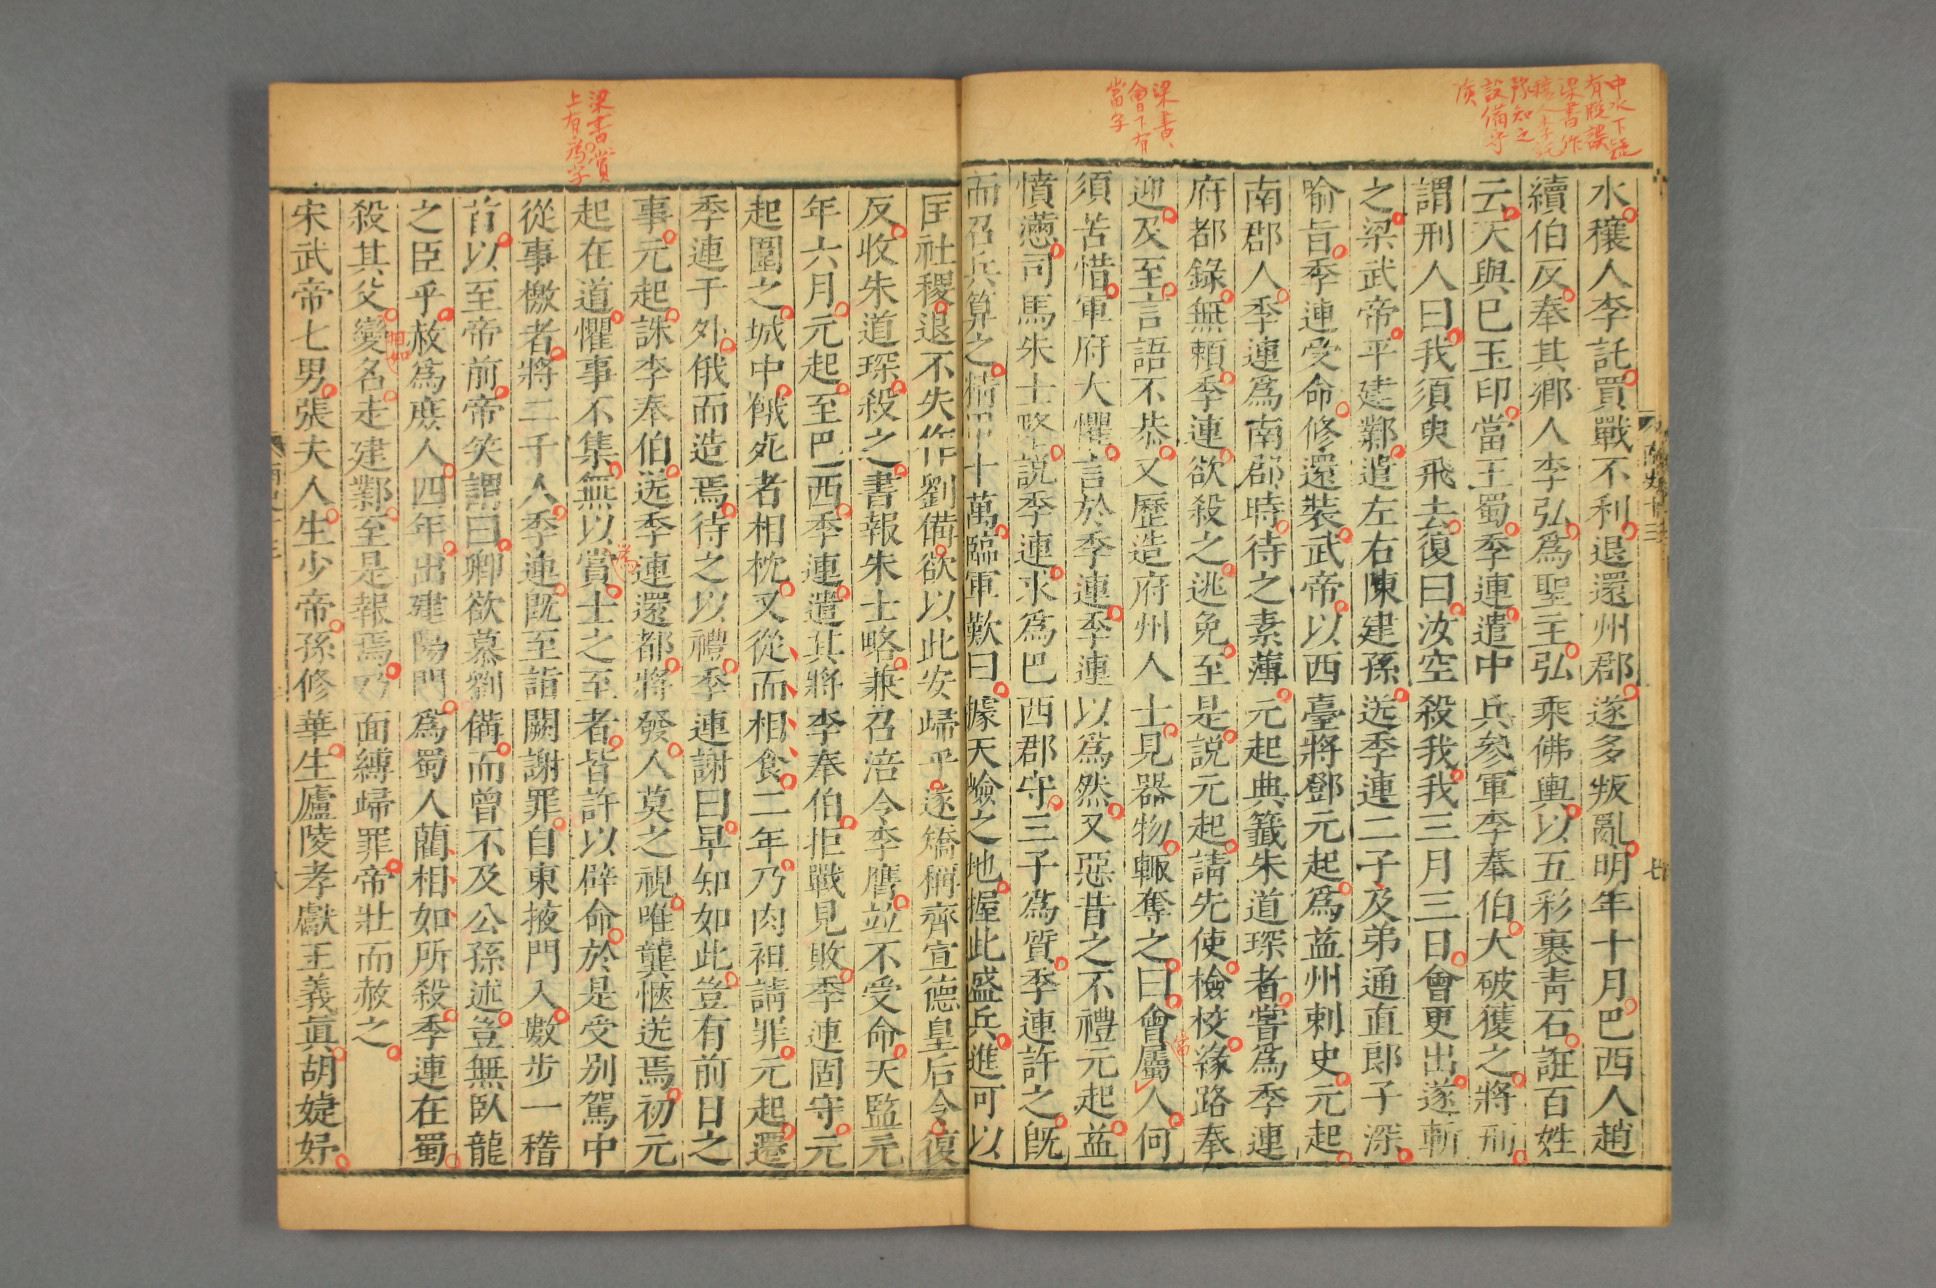 中水下疑
有脫誤
梁書作
穰人李託
豫知之
設備守
險
梁書
會下有
當字
水穰人李託買戰不利退還州郡遂多叛亂明年十月巴西人趙
續伯反奉其鄉人李弘爲聖主弘乘佛輿以五彩裹青石誑百姓
云天與巳玉印當王蜀季連遣中兵參軍李奉伯大破獲之將刑
謂刑人曰我須臾飛去復曰汝空殺我我三月三日會更出遂斬
之梁武帝平建鄴遣左右陳建孫送季連二子及弟通直郎子深
喻旨季連受命修還裝武帝以西臺將鄧元起爲益州刺史元起
南郡人季連爲南郡時待之素薄元起典籤朱道琛者嘗爲季連
府都錄無賴季連欲殺之逃免至是説元起請先使檢校緣路奉
迎及至言語不恭又歷造府州人士見器物輒奪之曰會屬人何
當
須苦惜軍府大懼言於季連季連以爲然又惡昔之不禮元起益
憤懣司馬朱士略説季連求爲巴西郡守三子爲質季連許之旣
而召兵算之精甲十萬臨軍歎曰據天嶮之地握此盛兵進可以
梁書賞
上有爲字
匡社稷退不失作劉備欲以此安歸乎遂矯稱齊宣德皇后令復
反收朱道琛殺之書報朱士略兼召涪令李膺並不受命天監元
年六月元起至巴西季連遣其將李奉伯拒戰見敗季連固守元
起圍之城中餓死者相枕又從而相食二年乃肉袒請罪元起遷
季連于外俄而造焉待之以禮季連謝曰早知如此豈有前日之
事元起誅李奉伯送季連還都將發人莫之視唯龔愜送焉初元
起在道懼事不集無以賞士之至者皆許以辟命於是受別駕中
爲
從事檄者將二千人季連旣至詣闕謝罪自東掖門入數步一稽
首以至帝前帝笑謂曰卿欲慕劉備而曾不及公孫述豈無臥龍
之臣乎赦爲庶人四年出建陽門爲蜀人藺相如所殺季連在蜀
殺其父變名走建鄴至是報焉乃面縛歸罪帝壯而赦之
相如
宋武帝七男張夫人生少帝孫修華生廬陵孝獻王義眞胡婕妤